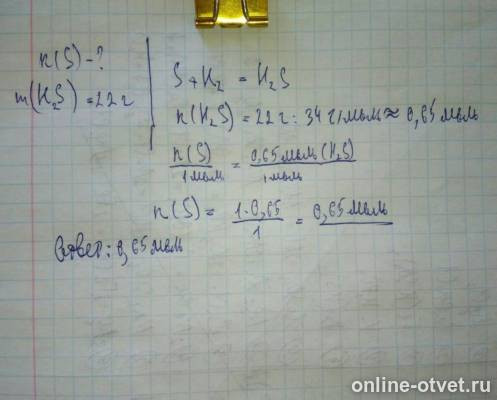 n(S) - ?
m(H₂S) = 22 г
S + H₂ = H₂S
n(H₂S) = 22 г : 34 г/моль ≈ 0,65 моль
n(S)/1 моль = 0,65 моль (H₂S)/1 моль
n(S) = 1·0,65/1 = 0,65 моль
Ответ: 0,65 моль
online-otvet.ru